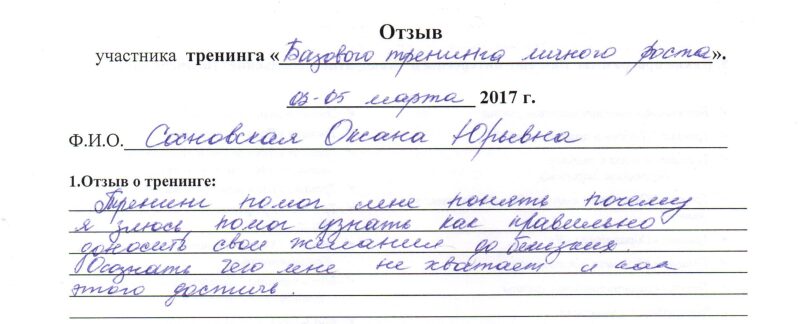 Отзыв
участника тренинга «Базового тренинга личного роста».
03-05 марта 2017 г.
Ф.И.О. Сосновская Оксана Юрьевна
1.Отзыв о тренинге:
Тренинг помог мне понять почему
я злюсь, помог узнать как правильно
доносить свои желания до близких.
Осознать чего мне не хватает и как
этого достичь.